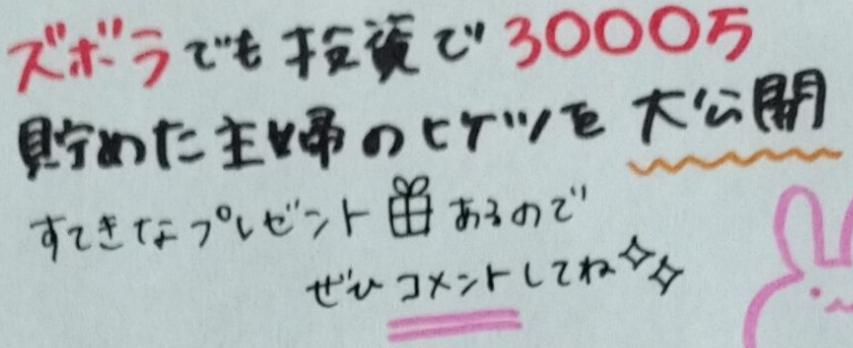 ズボラでも投資で3000万
貯めた主婦のヒケツを大公開
すてきなプレゼントあるので
ぜひコメントしてね